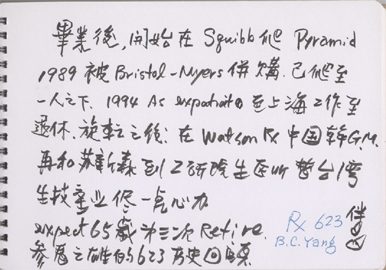 畢業後,開始在 Squibb 爬 Pyramid
1989 被 Bristol-Myers 併購.已爬至
一人之下. 1994 As expatriate 至上海工作至
退休.旋轉之後.在 Watson Rx 中國幹G.M.
再和蘇新森到工研院生医所 替台灣
生技產業 尽一点心力
expect 65歲 第二次 Retire.
參.之 623 历史回顧.
Rx 623
B.C. Yang